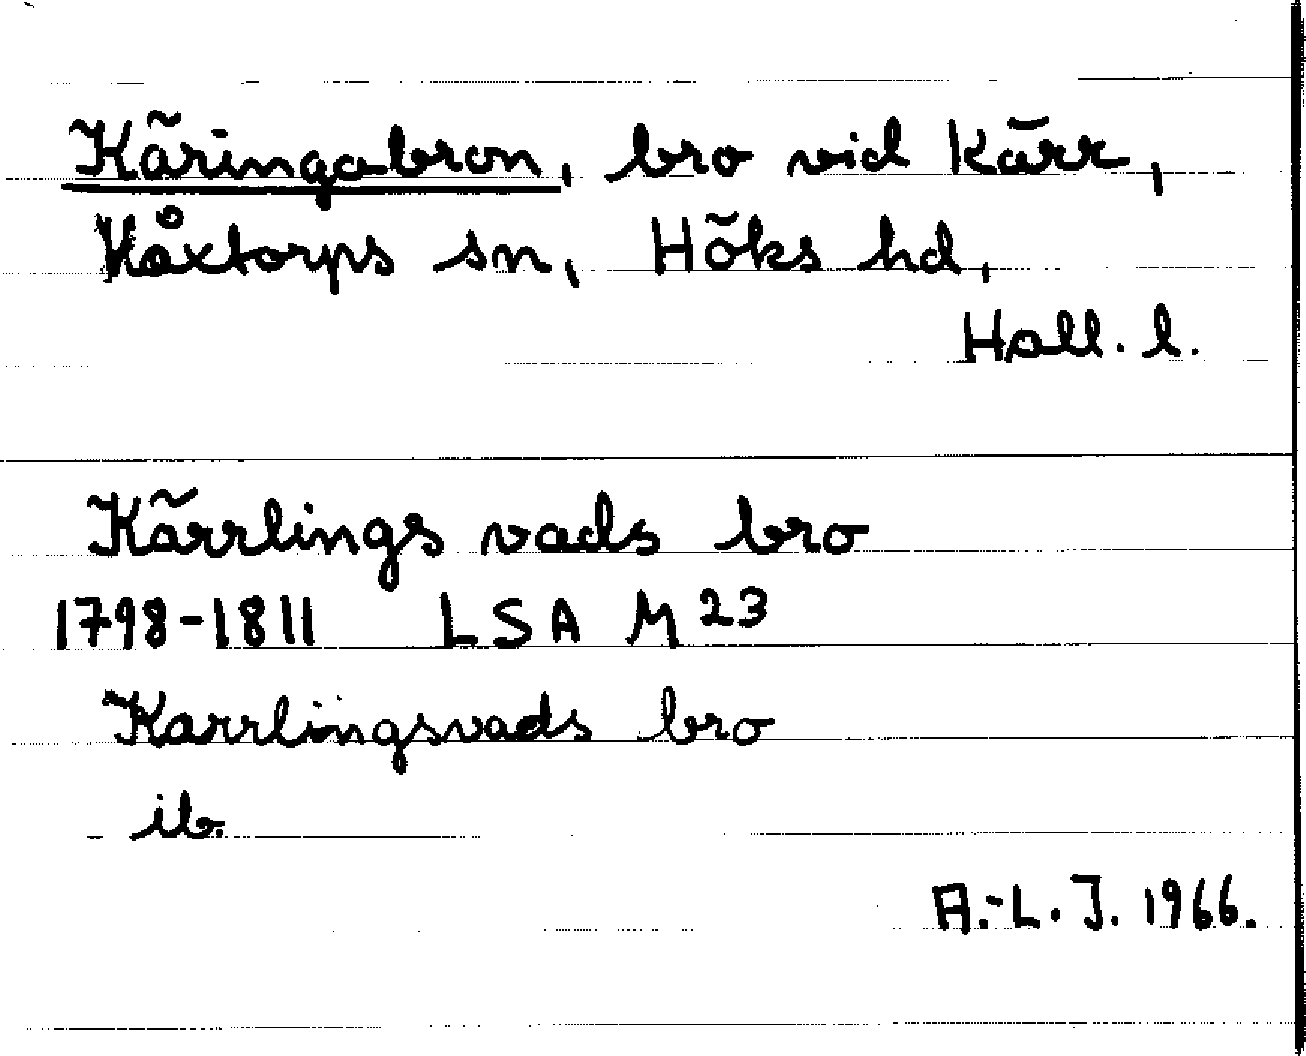 Käringabron, bro vid Kärr,
Våxtorps sn, Höks hd,
Hall. l.
Kärrlings vads bro
1798-1811 LSA M 23
Karrlingsvads bro
ib.
A.-L. J. 1966.